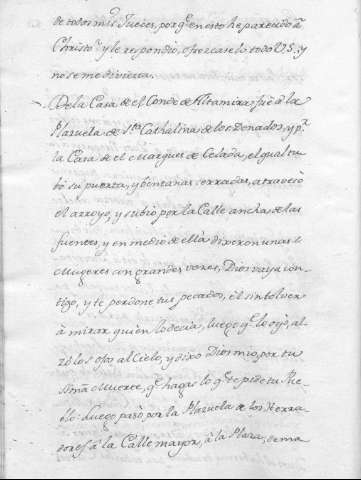 de todos mis Jueces, porq̃ en esto he parecido â
Christo y le respondio, ofrezcaselo todo V.S. y
no se me divierta.
De la Casa de el Conde de Altamira fuè â la
Plazuela de S.ta Cathalina de los Donados, y p.r
la Casa de el Marques de Celada, el qual tu-
bo su puerta, y bentanas cerradas, atravesò
el arroyo, y subio por la Calle ancha de las
fuentes, y en medio de ella dixeron unas
Mugeres con grandes voces, Dios vaya con-
tigo, y te perdone tus pecados, èl sin bolver
â mirar quien lo decia, luego q̃ lo oyò, al-
zò los ojos al Cielo, y dixo Dios mio, por tu
SS.ma Muerte, q̃ hagas lo q̃ te pide tu Pue-
blo: Luego pasò por la Plazuela de los Herra-
dores, â la Calle mayor, â la Plaza, de ma